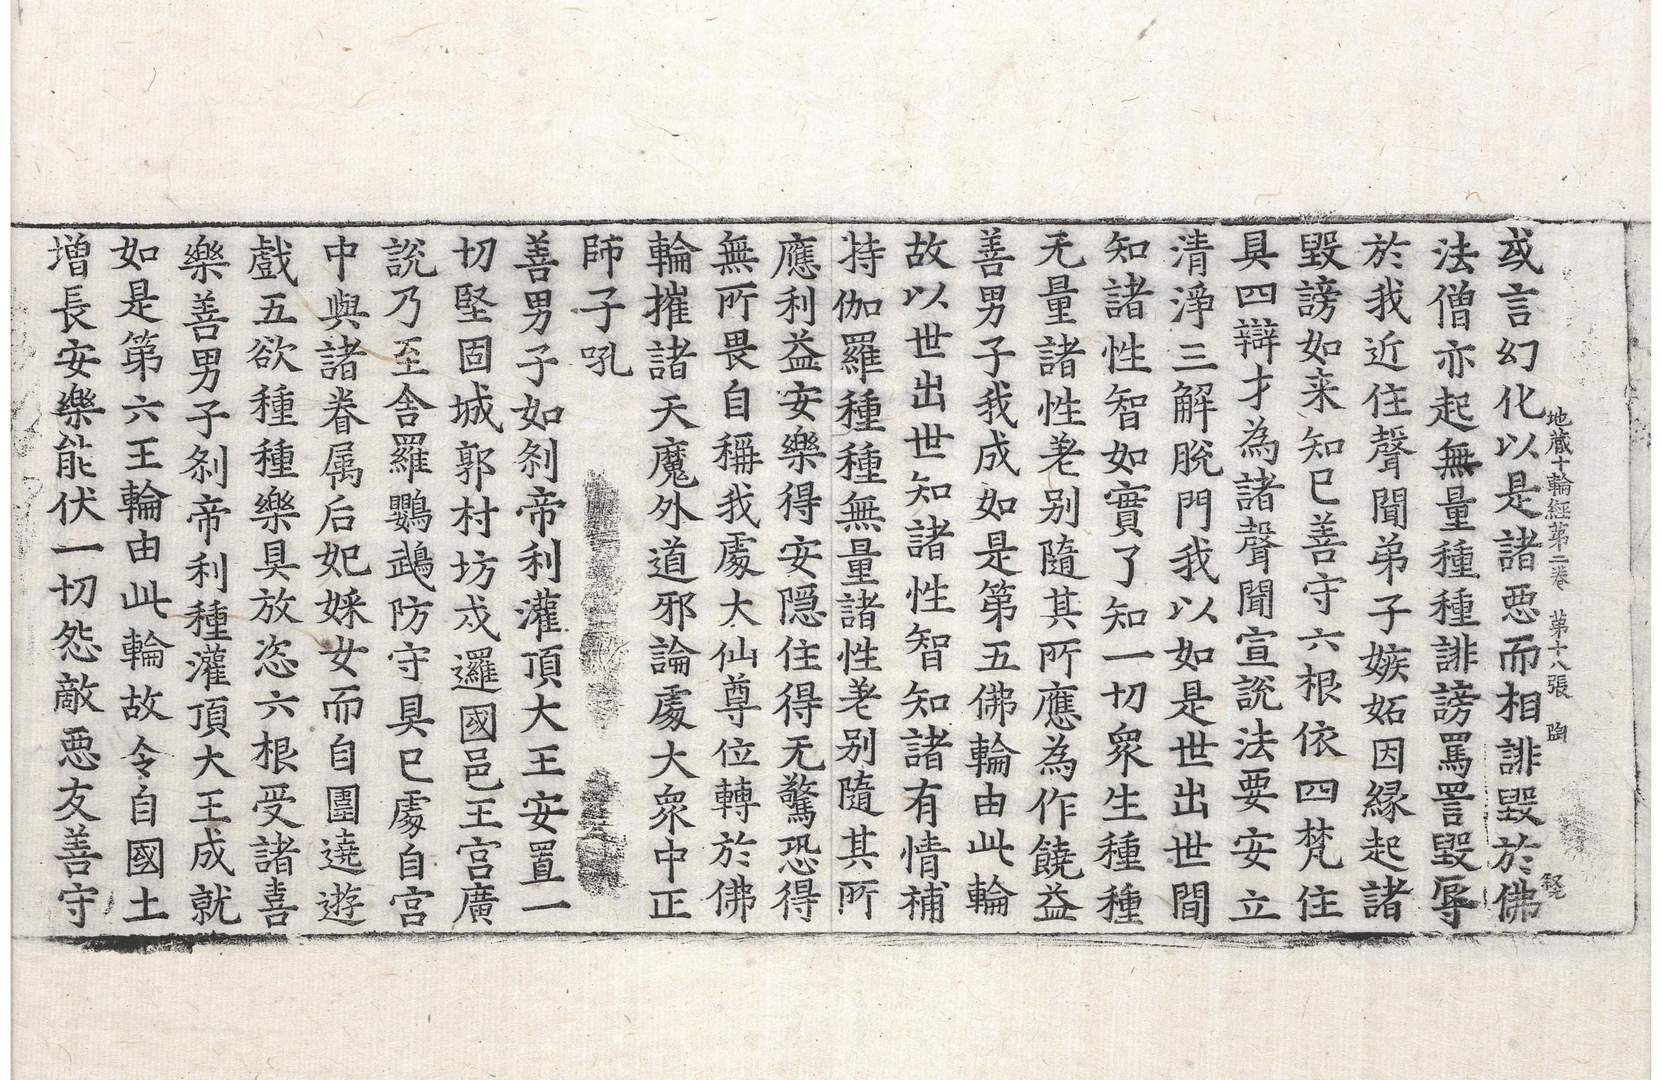 地藏十輪經第二卷　第十八張　陶
或言幻化以是諸惡而相誹毀於佛
法僧亦起無量種種誹謗罵詈毀辱
於我近住聲聞弟子嫉妬因緣起諸
毀謗如来知已善守六根依四梵住
具四辯才為諸聲聞宣說法要安立
清淨三解脫門我以如是世出世間
知諸性智如實了知一切衆生種種
无量諸性差别隨其所應為作饒益
善男子我成如是第五佛輪由此輪
故以世出世知諸性智知諸有情補
特伽羅種種無量諸性差别隨其所
應利益安樂得安隱住得无驚恐得
無所畏自稱我處大仙尊位轉於佛
輪摧諸天魔外道邪論處大衆中正
師子吼
善男子如刹帝利灌頂大王安置一
切堅固城郭村坊戍邏國邑王宮廣
說乃至舍羅鸚鵡防守具已處自宮
中與諸眷属后妃婇女而自圍遶遊
戲五欲種種樂具放恣六根受諸喜
樂善男子刹帝利種灌頂大王成就
如是第六王輪由此輪故令自國土
增長安樂能伏一切怨敵惡友善守